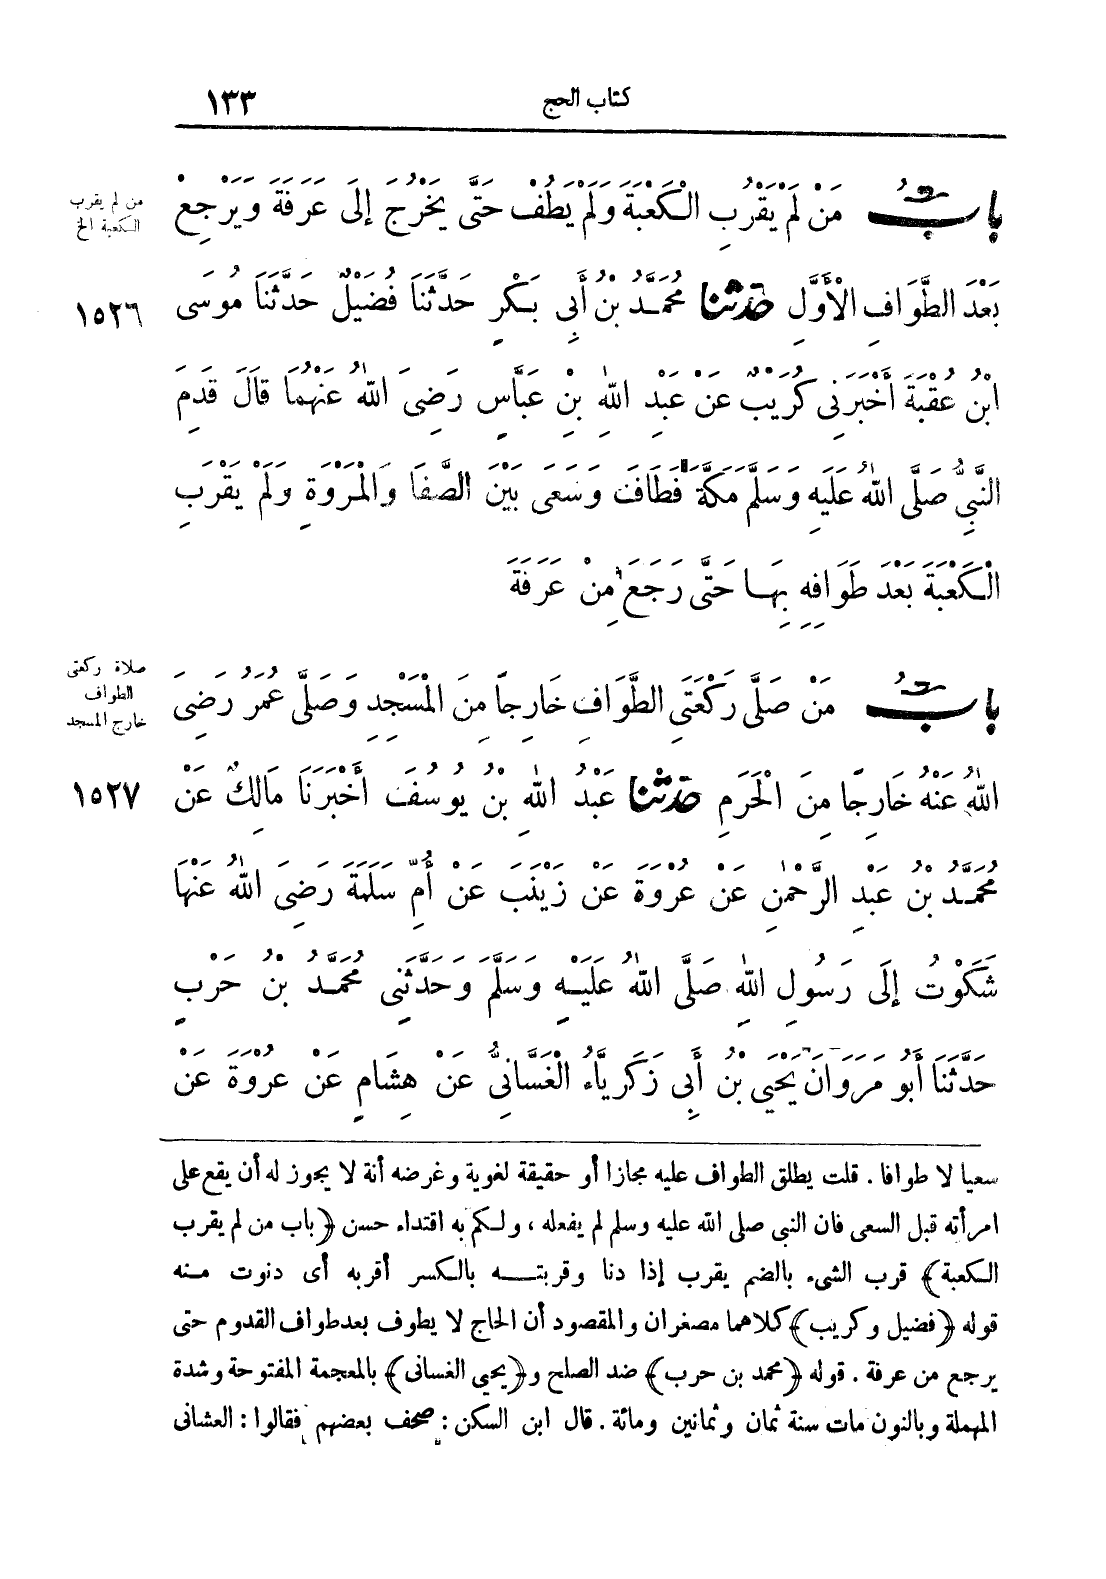 كتاب الحج ١٣٣
بابُ مَنْ لَمْ يَقْرَبِ الْكَعْبَةَ وَلَمْ يَطُفْ حَتَّى يَخْرُجَ إِلَى عَرَفَةَ وَيَرْجِعَ
من لم يقرب
الكعبة الخ
بَعْدَ الطَّوَافِ الْأَوَّلِ حَدَّثَنَا مُحَمَّدُ بْنُ أَبِي بَكْرٍ حَدَّثَنَا فُضَيْلٌ حَدَّثَنَا مُوسَى
١٥٢٦
ابْنُ عُقْبَةَ أَخْبَرَنِي كُرَيْبٌ عَنْ عَبْدِ اللهِ بْنِ عَبَّاسٍ رَضِيَ اللهُ عَنْهُمَا قَالَ قَدِمَ
النَّبِيُّ صَلَّى اللهُ عَلَيْهِ وَسَلَّمَ مَكَّةَ فَطَافَ وَسَعَى بَيْنَ الصَّفَا وَالْمَرْوَةِ وَلَمْ يَقْرَبِ
الْكَعْبَةَ بَعْدَ طَوَافِهِ بِهَا حَتَّى رَجَعَ مِنْ عَرَفَةَ
بابُ مَنْ صَلَّى رَكْعَتَيِ الطَّوَافِ خَارِجًا مِنَ الْمَسْجِدِ وَصَلَّى عُمَرُ رَضِيَ
صلاة ركعتى
الطواف
خارج المسجد
اللهُ عَنْهُ خَارِجًا مِنَ الْحَرَمِ حَدَّثَنَا عَبْدُ اللهِ بْنُ يُوسُفَ أَخْبَرَنَا مَالِكٌ عَنْ
١٥٢٧
مُحَمَّدِ بْنِ عَبْدِ الرَّحْمٰنِ عَنْ عُرْوَةَ عَنْ زَيْنَبَ عَنْ أُمِّ سَلَمَةَ رَضِيَ اللهُ عَنْهَا
شَكَوْتُ إِلَى رَسُولِ اللهِ صَلَّى اللهُ عَلَيْهِ وَسَلَّمَ وَحَدَّثَنِي مُحَمَّدُ بْنُ حَرْبٍ
حَدَّثَنَا أَبُو مَرْوَانَ يَحْيَى بْنُ أَبِي زَكَرِيَّاءَ الْغَسَّانِيُّ عَنْ هِشَامٍ عَنْ عُرْوَةَ عَنْ
سعيا لا طوافا . قلت يطلق الطواف عليه مجازا أو حقيقة لغوية وغرضه أنة لا يجوز له أن يقع على
امرأته قبل السعى فان النبى صلى الله عليه وسلم لم يفعله ، ولكم به اقتداء حسن ﴿باب من لم يقرب
الكعبة﴾ قرب الشىء بالضم يقرب إذا دنا وقربته بالكسر أقربه أى دنوت منه
قوله ﴿فضيل وكريب﴾ كلاهما مصغران والمقصود أن الحاج لا يطوف بعد طواف القدوم حتى
يرجع من عرفة . قوله ﴿محمد بن حرب﴾ ضد الصلح و﴿يحيى الغسانى﴾ بالمعجمة المفتوحة وشدة
المهملة وبالنون مات سنة ثمان وثمانين ومائة . قال ابن السكن : صحف بعضهم فقالوا : العشانى